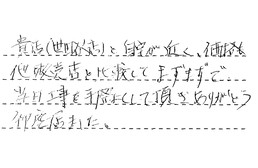 貴店(世田谷店)と自宅が近く、価格も
他販売店と比較してまずまずで
当日工事を手配して頂きありがとう
御座居ました。